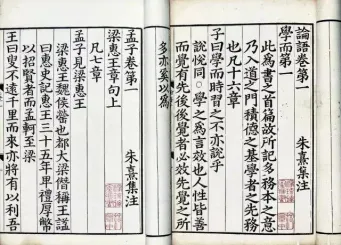 論語卷第一
學而第一
朱熹集注
此為書之首篇故所記多務本之意
乃入道之門積德之基學者之先務
也凡十六章
子曰學而時習之不亦說乎
說悅同○學之為言效也人性皆善
而覺有先後後覺者必效先覺之所
多亦奚以為
孟子卷第一
朱熹集注
梁惠王章句上
凡七章
孟子見梁惠王
梁惠王魏侯罃也都大梁僭稱王諡
曰惠史記惠王三十五年卑禮厚幣
以招賢者而孟軻至梁
王曰叟不遠千里而來亦將有以利吾